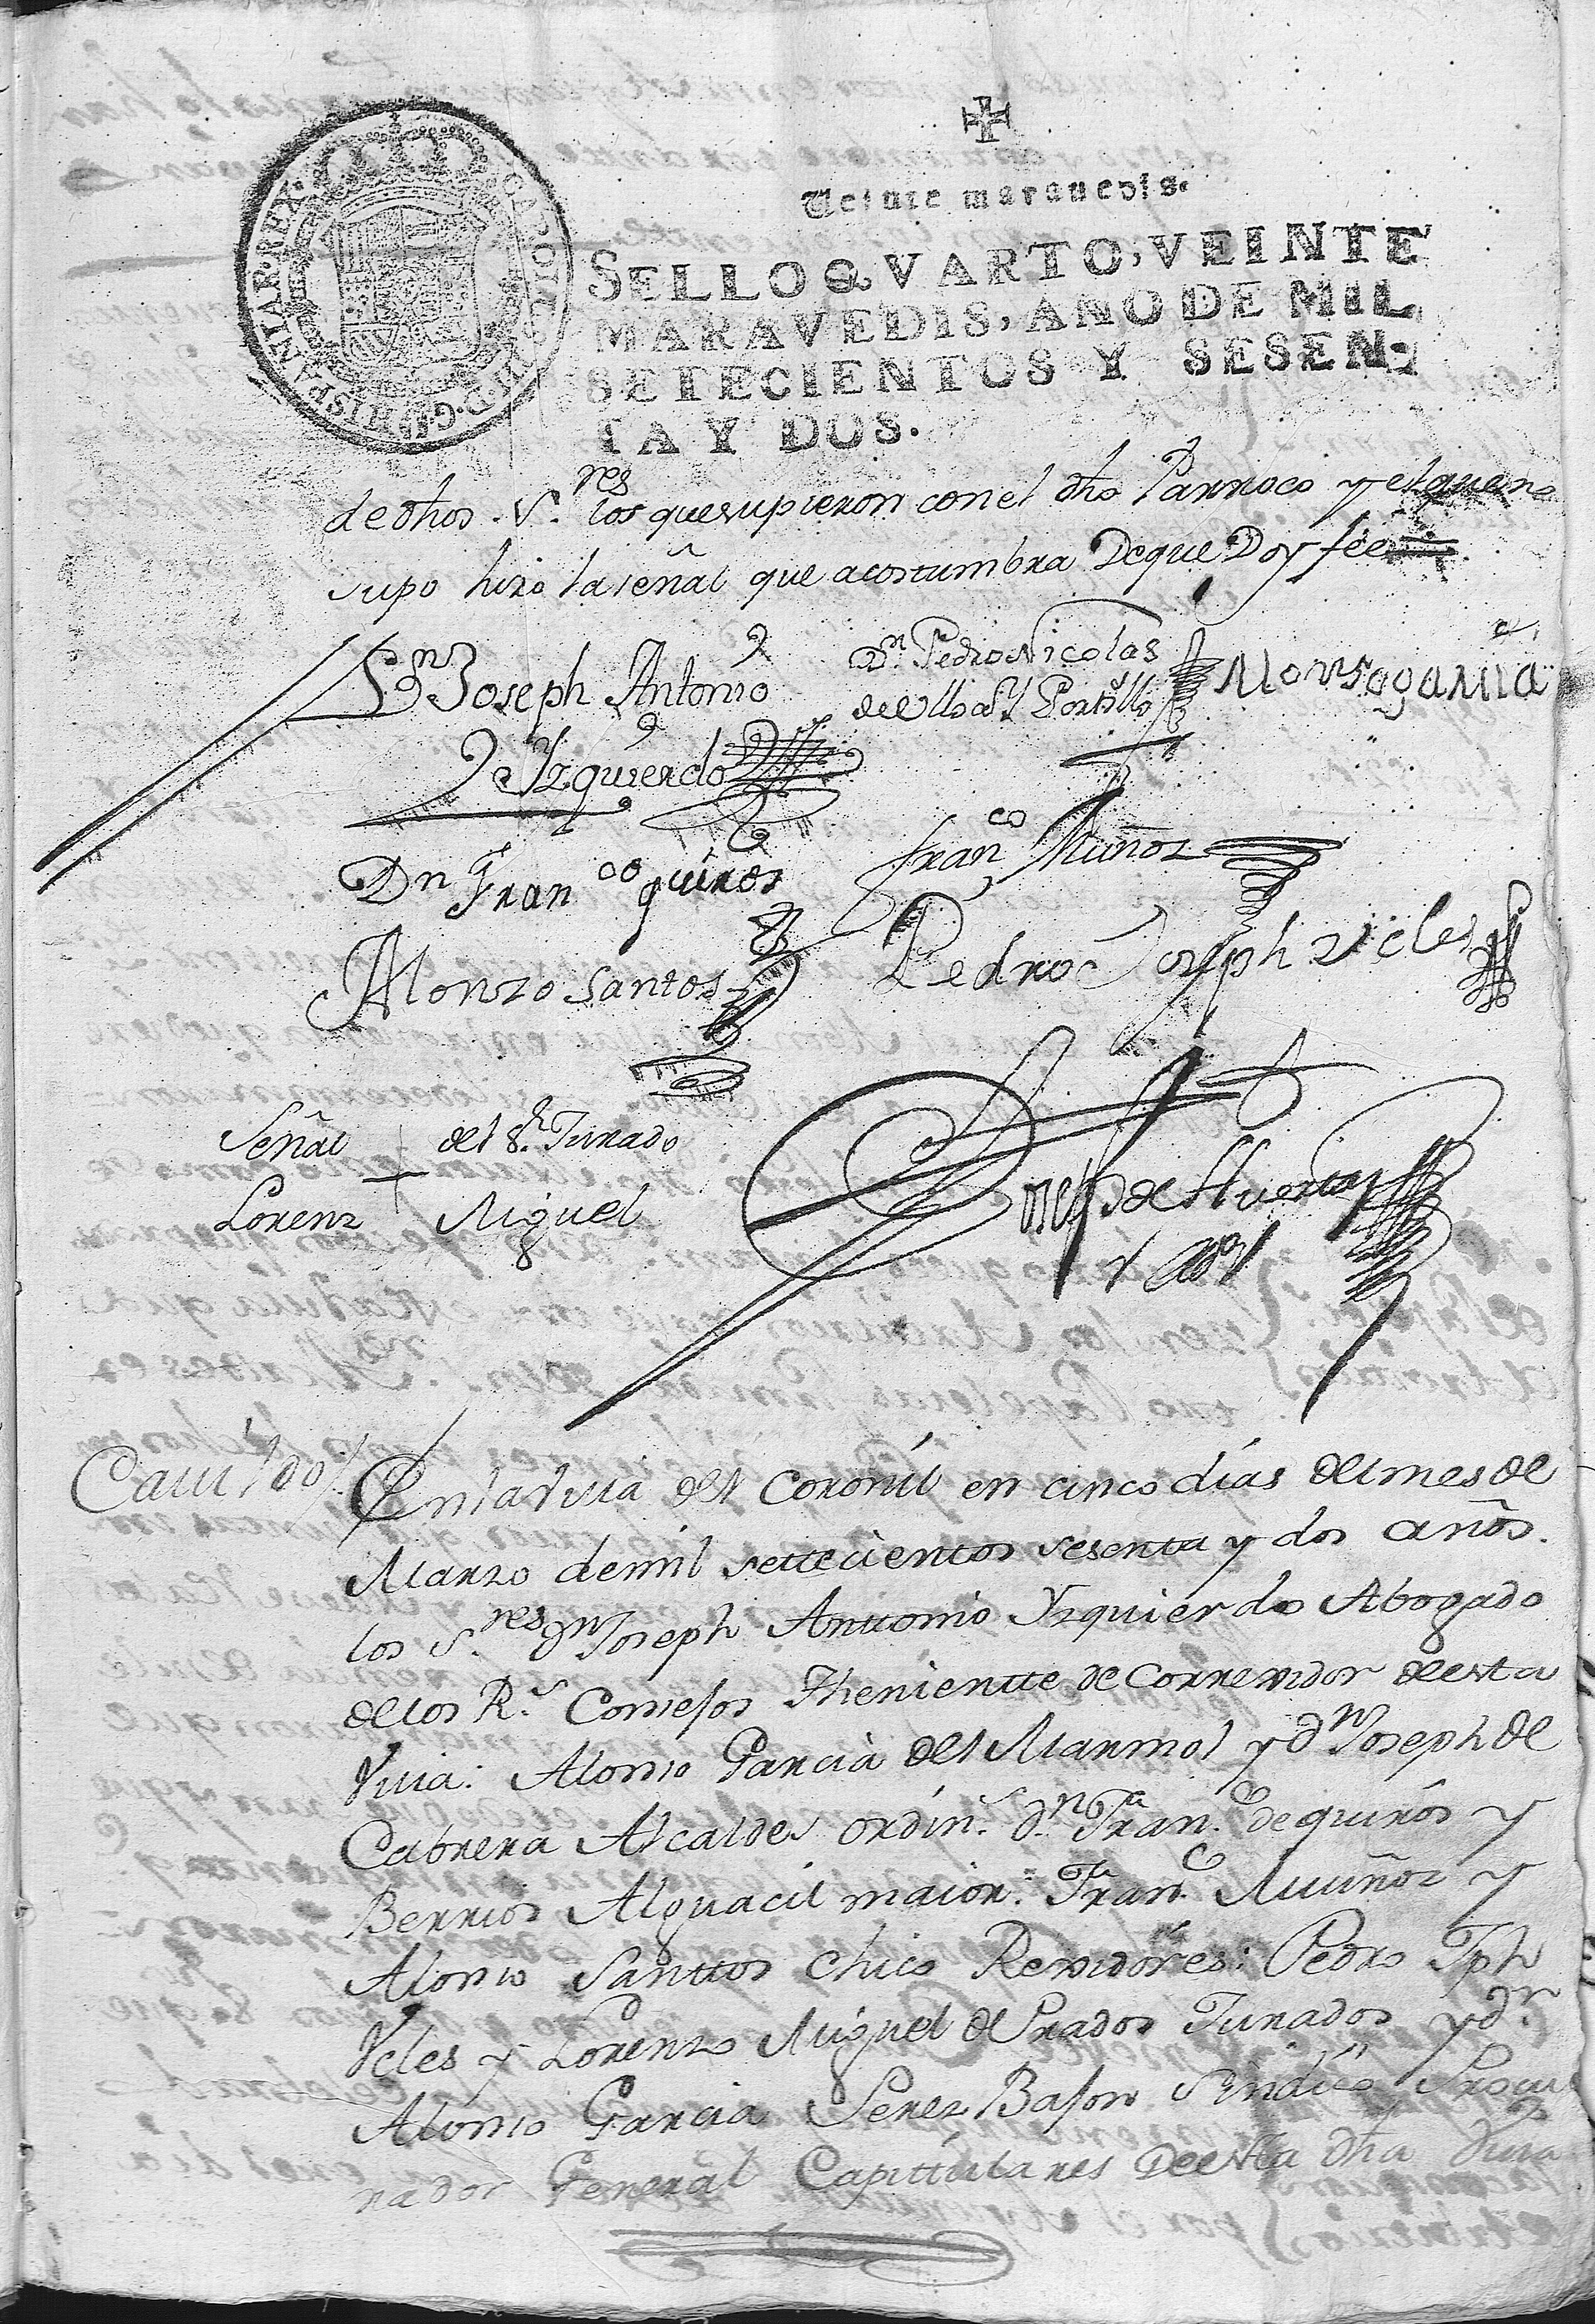 Veinte maravedis.
SELLO QVARTO, VEINTE
MARAVEDIS, AÑO DE MIL
SETECIENTOS Y SESEN-
TA Y DOS.
CAROLUS III D.G. HISPANIAR. REX
de dhos S.res los que supieron con el dho Parroco y el que no
supo hizo la señal que acostumbra De que Doy fee
D.n Joseph Antonio
Yzquierdo
D.n Pedro Nicolas
Portillo
Alonso garcia
Dn Fran co quiros
Fran co Muñoz
Alonzo Santos
Pedro Joseph veles
Señal del S.r Jurado
Lorenz Miguel
de Huerta
Cavildo
En la Villa del Coronil en cinco dias del mes de
Marzo de mil settecientos sesenta y dos años.
los S.res Dn Joseph Anttonio Yzquierdo Abogado
de los R.s Consejos Thenientte de Correxidor de esta
Villa: Alonso Garcia del Marmol y Dn Joseph de
Cabrera Alcaldes ordin.s D.n Fran.co de quirós y
Berrios Alguacil maior: Fran.co Muñoz y
Alonso Santtos Chico Rexidores: Pedro Jph
Veles y Lorenzo Miguel de Prados Jurados y Dn
Alonso Garcia Perez Bason Sindico Procu
rador General Capittulares De esta dha Villa